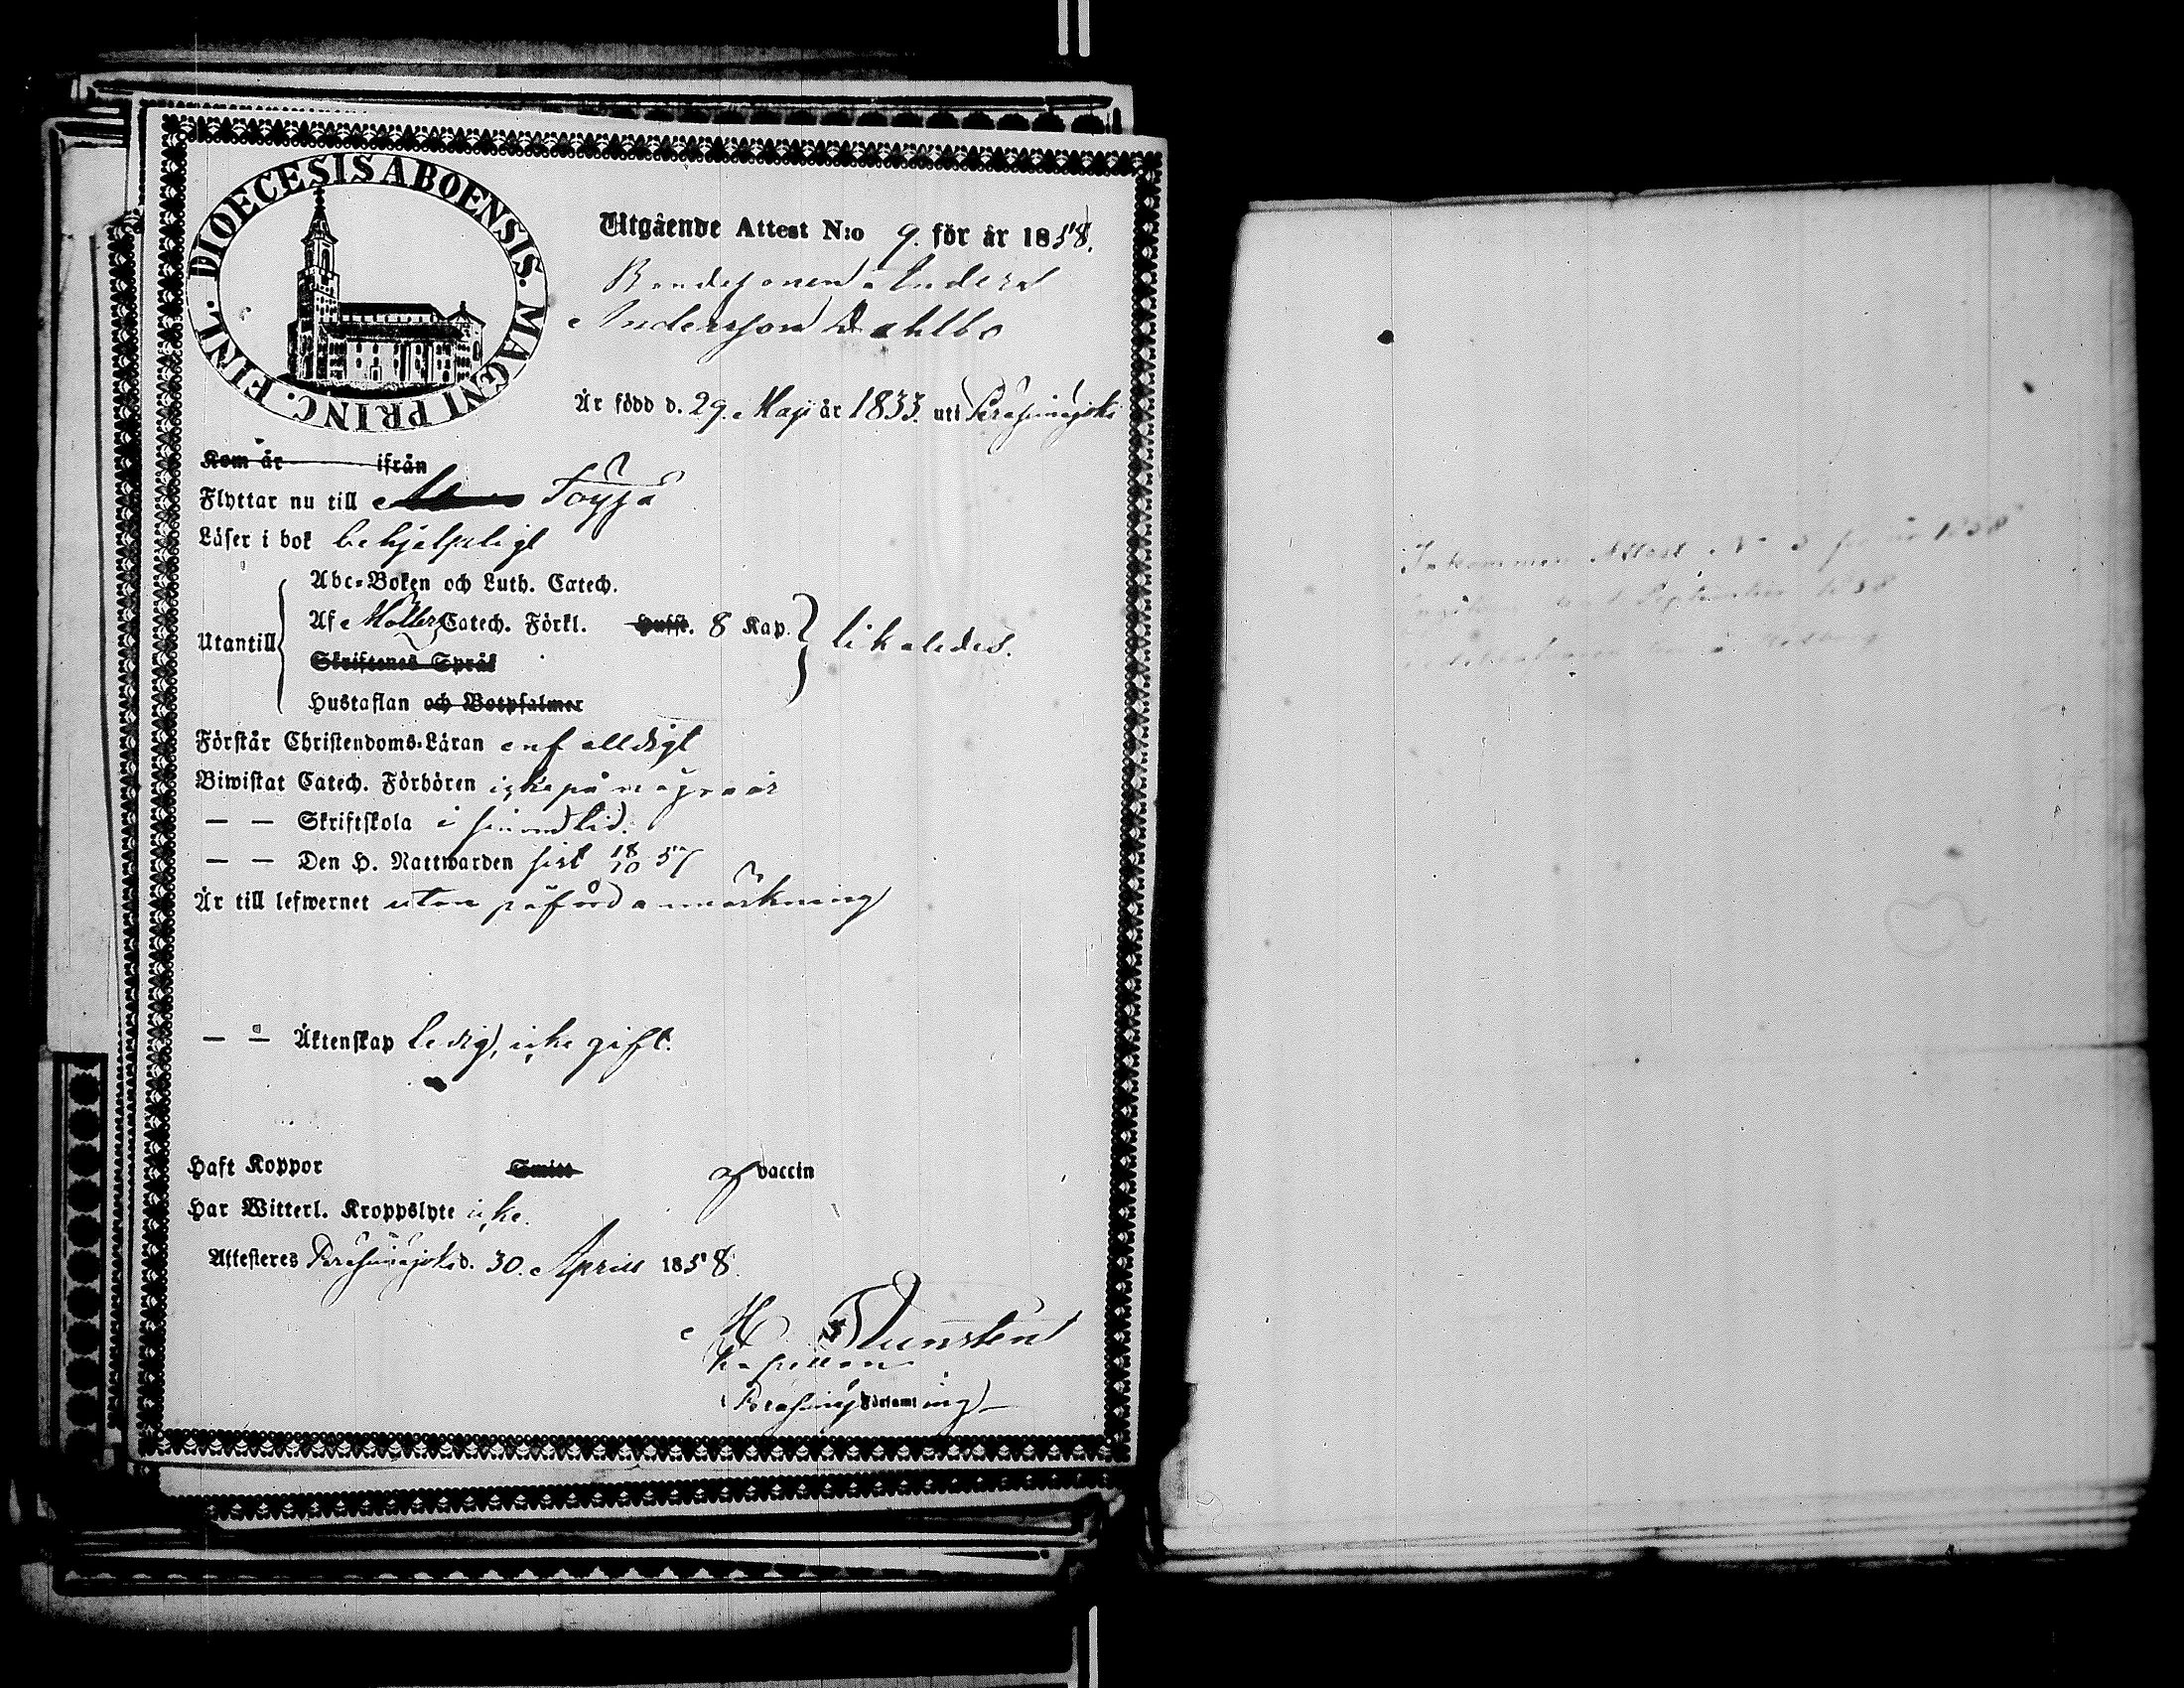 DIOECESIS ABOENSIS. MAGNI PRINC. FINL.
Utgående Attest N:o 9. för år 1858.
Bondesonen Anders
Andersson Dahlbo
Är född d. 29. Maji år 1833. uti Peräseinäjoki
Kom år ifrån
Flyttar nu till Töysä
Läser i bok behjelpligt
Abc-Boken och Luth. Catech.
Af Möllers Catech. Förkl. Hufst. 8 Kap.
Utantill likaledes.
Skriftenes Språk
Hustaflan och Botpsalmer
Förstår Christendoms-Läran enfalldigt
Biwistat Catech. Förhören icke på några år
— — Skriftskola i sinom tid.
— — Den H. Nattwarden sist 18/10 57
Är till lefwernet utan påförd anmärkning
— — Äktenskap ledig, icke gift.
Haft Koppor Smitt af vaccin
Har Witterl. Kroppslyte icke.
Attesteres Peräseinäjoki d. 30. April 1858.
Kapellan
Inkommen Attest N:o 3 för år 1858
September 1858